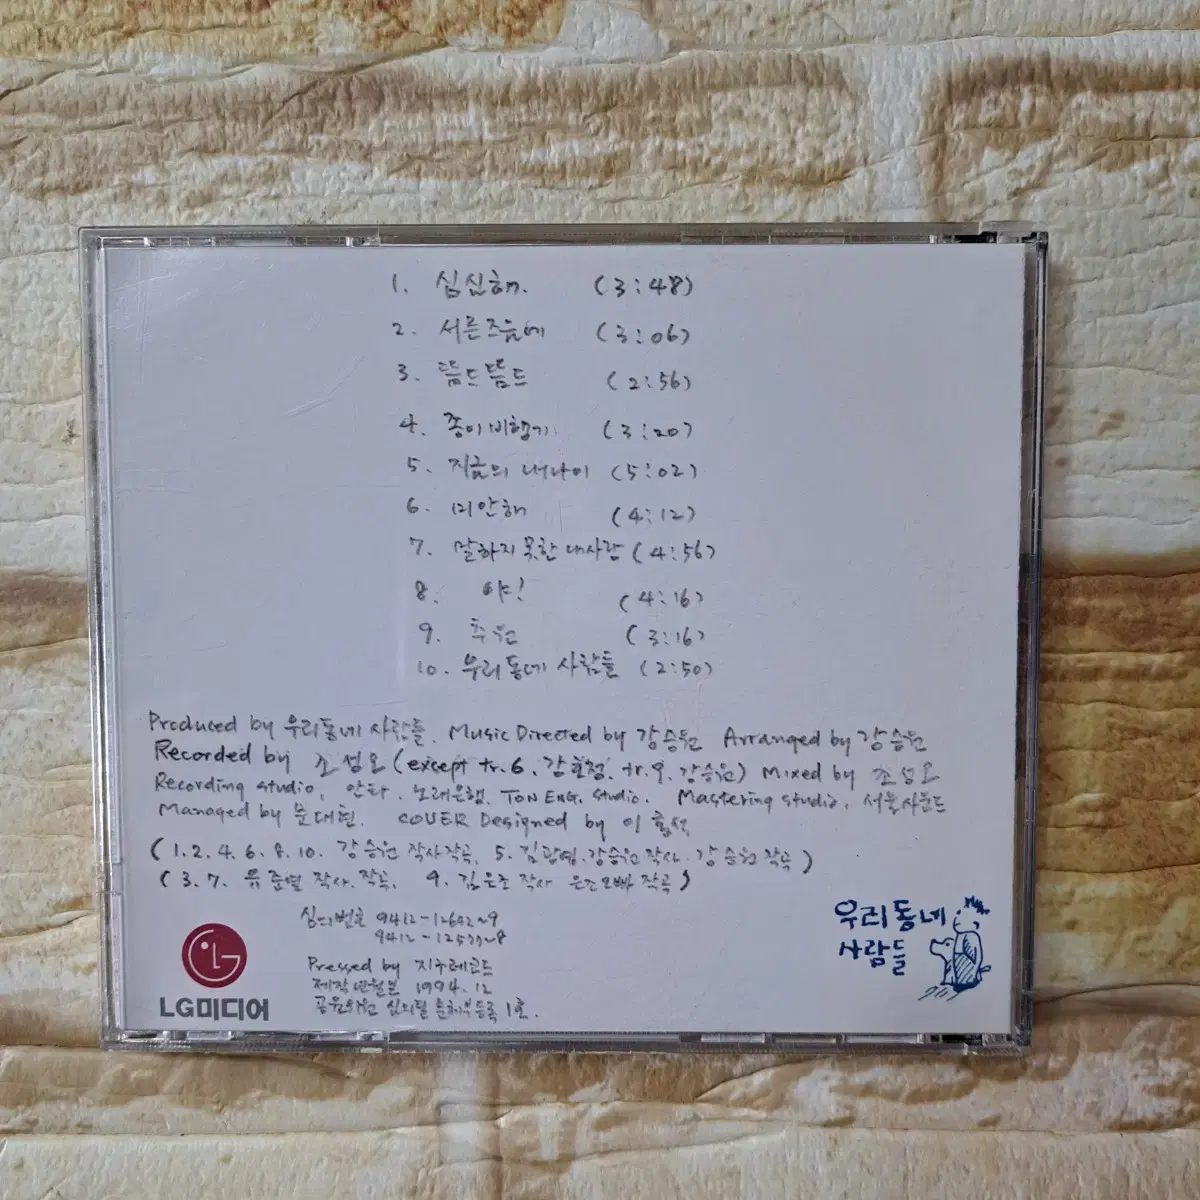 1. 심심해. (3:48)
2. 서른즈음에 (3:06)
3. 뜸드뜸드 (2:56)
4. 종이비행기. (3:20)
5. 지금의 내나이 (5:02)
6. 미안해 (4:12)
7. 말하지 못한 내사랑 (4:56)
8. 야! (4:16)
9. 추원 (3:16)
10. 우리동네 사람들 (2:50)
Produced by 우리동네 사람들. Music Directed by 강승원 Arranged by 강승원
Recorded by 조성오 (except tr.6. 김효정, tr.9. 강승원) Mixed by 조성오
Recording studio. 안타. 노래은행. TON ENG. studio. Mastering studio. 서울사운드
Managed by 문대현. COVER Designed by 이
(1.2.4.6.8.10. 강승원 작사작곡, 5. 강승원 작사. 강승원 작곡)
(3.7. 유준열 작사.작곡, 9. 김은조 작사 은조오빠 작곡)
심의번호 9412-
9412-
Pressed by 지구레코드
제작년월일 1994.12
1호.
LG미디어
우리동네
사람들